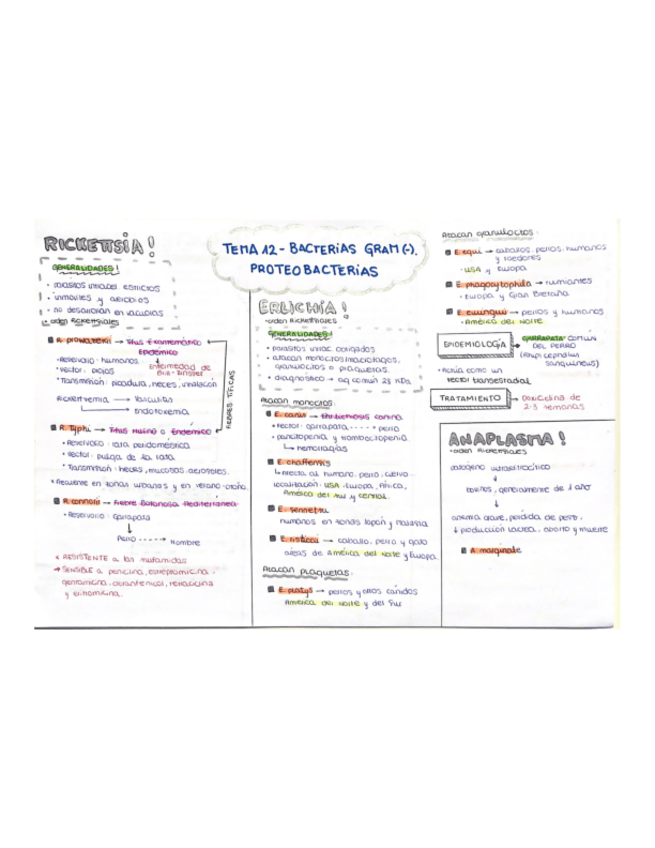 TEMA 12 - BACTERIAS GRAM (-).
PROTEOBACTERIAS
RICKETTSIA!
GENERALIDADES!
• parásitos intrac estrictos
• inmóviles y aerobios
• no desarrollan en vacuolas
• orden Rickettsiales
R. prowazekii → Tifus Exantemático
Epidémico
• Reservorio: humanos
enfermedad de
Brill-Zinsser
• Vector: piojos
• Transmisión: picadura, heces, inhalación
Rickettsemia → Vasculitis
→ Endotoxemia
R. Typhi → Tifus Murino o Endémico
• Reservorio: rata peridoméstica
• Vector: pulga de la rata
• Transmisión: heces, mucosas, aerosoles.
• Frecuente en zonas urbanas y en verano-otoño.
FIEBRES TÍFICAS
R. connorii → Fiebre Botonosa Mediterránea
• Reservorio: garrapata
Perro ----→ Hombre
RESISTENTE a las sulfamidas
→ SENSIBLE a penicilina, estreptomicina,
gentamicina, cloranfenicol, tetraciclina
y eritromicina.
ERLICHIA!
-orden Rickettsiales
GENERALIDADES!
• parásitos intrac. obligados
• atacan monocitos/macrófagos,
granulocitos o plaquetas.
• diagnóstico → ag común 23 KDa
Atacan monocitos:
E. canis → Ehrlichiosis canina
• Vector: garrapata ----- perro
• pancitopenia y trombocitopenia
↳ hemorragias
E. chaffensis
↳ Afecta al humano, perro, ciervo
localización: USA, Europa, África,
América del Sur y central
E. sennetsu
humanos en zonas Japón y Malasia
E. risticii → caballo, perro y gato
áreas de América del Norte y Europa.
Atacan plaquetas:
E. platys → perros y otros cánidos
América del Norte y del Sur
Atacan granulocitos:
E. equi → caballos, perros, humanos
y roedores
• USA y Europa
E. phagocytophila → rumiantes
• Europa y Gran Bretaña
E. ewingii → perros y humanos
• América del Norte
EPIDEMIOLOGÍA → GARRAPATA COMÚN
DEL PERRO
(Rhipicephalus
sanguineus)
• Actúa como un
vector transestadial
TRATAMIENTO → Doxiciclina de
2-3 semanas
ANAPLASMA!
-orden Rickettsiales
patógeno intraeritrocítico
↓
bovinos, generalmente de 1 año
↓
anemia grave, pérdida de peso,
↓ producción láctea, aborto y muerte
A. marginale